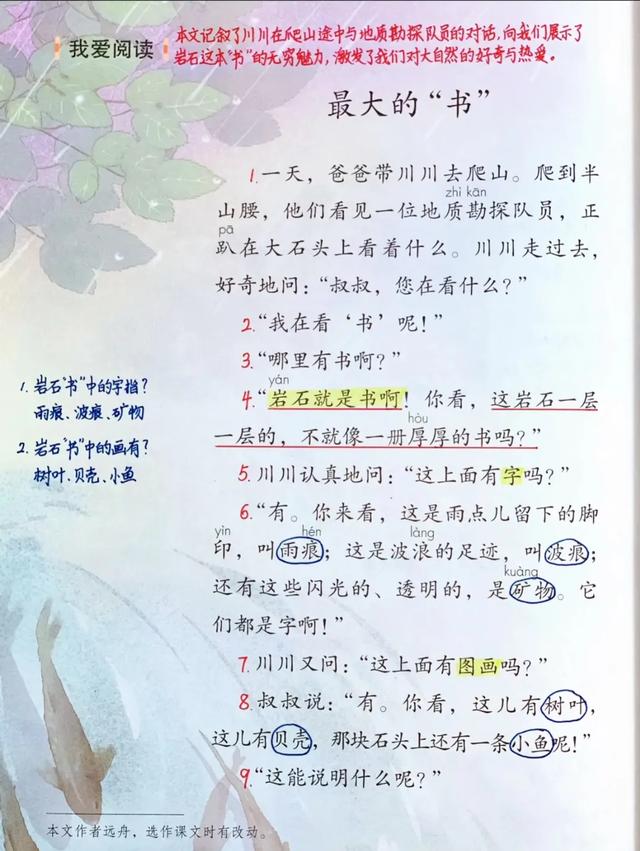 我爱阅读
本文记叙了川川在爬山途中与地质勘探队员的对话,向我们展示了
岩石这本"书"的无穷魅力,激发了我们对大自然的好奇与热爱。
最大的“书”
1.一天,爸爸带川川去爬山。爬到半
zhì kān
山腰,他们看见一位地质勘探队员,正
pā
趴在大石头上看着什么。川川走过去,
好奇地问:“叔叔,您在看什么?”
2.“我在看‘书’呢!”
3.“哪里有书啊?”
yán
4.“岩石就是书啊!你看,这岩石一层
hòu
一层的,不就像一册厚厚的书吗?”
1. 岩石"书"中的字指?
雨痕、波痕、矿物
2. 岩石"书"中的画有?
树叶、贝壳、小鱼
5.川川认真地问:“这上面有字吗?”
6.“有。你来看,这是雨点儿留下的脚
yìn hén làng
印,叫雨痕;这是波浪的足迹,叫波痕;
kuàng
还有这些闪光的、透明的,是矿物。它
们都是字啊!”
7.川川又问:“这上面有图画吗?”
8.叔叔说:“有。你看,这儿有树叶,
这儿有贝壳,那块石头上还有一条小鱼呢!”
9.“这能说明什么呢?”
本文作者远舟,选作课文时有改动。